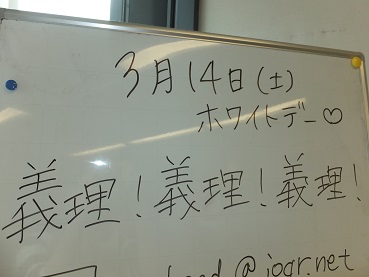 3月14日(土)
ホワイトデー♡
義理!義理!義理!
@joqr.net